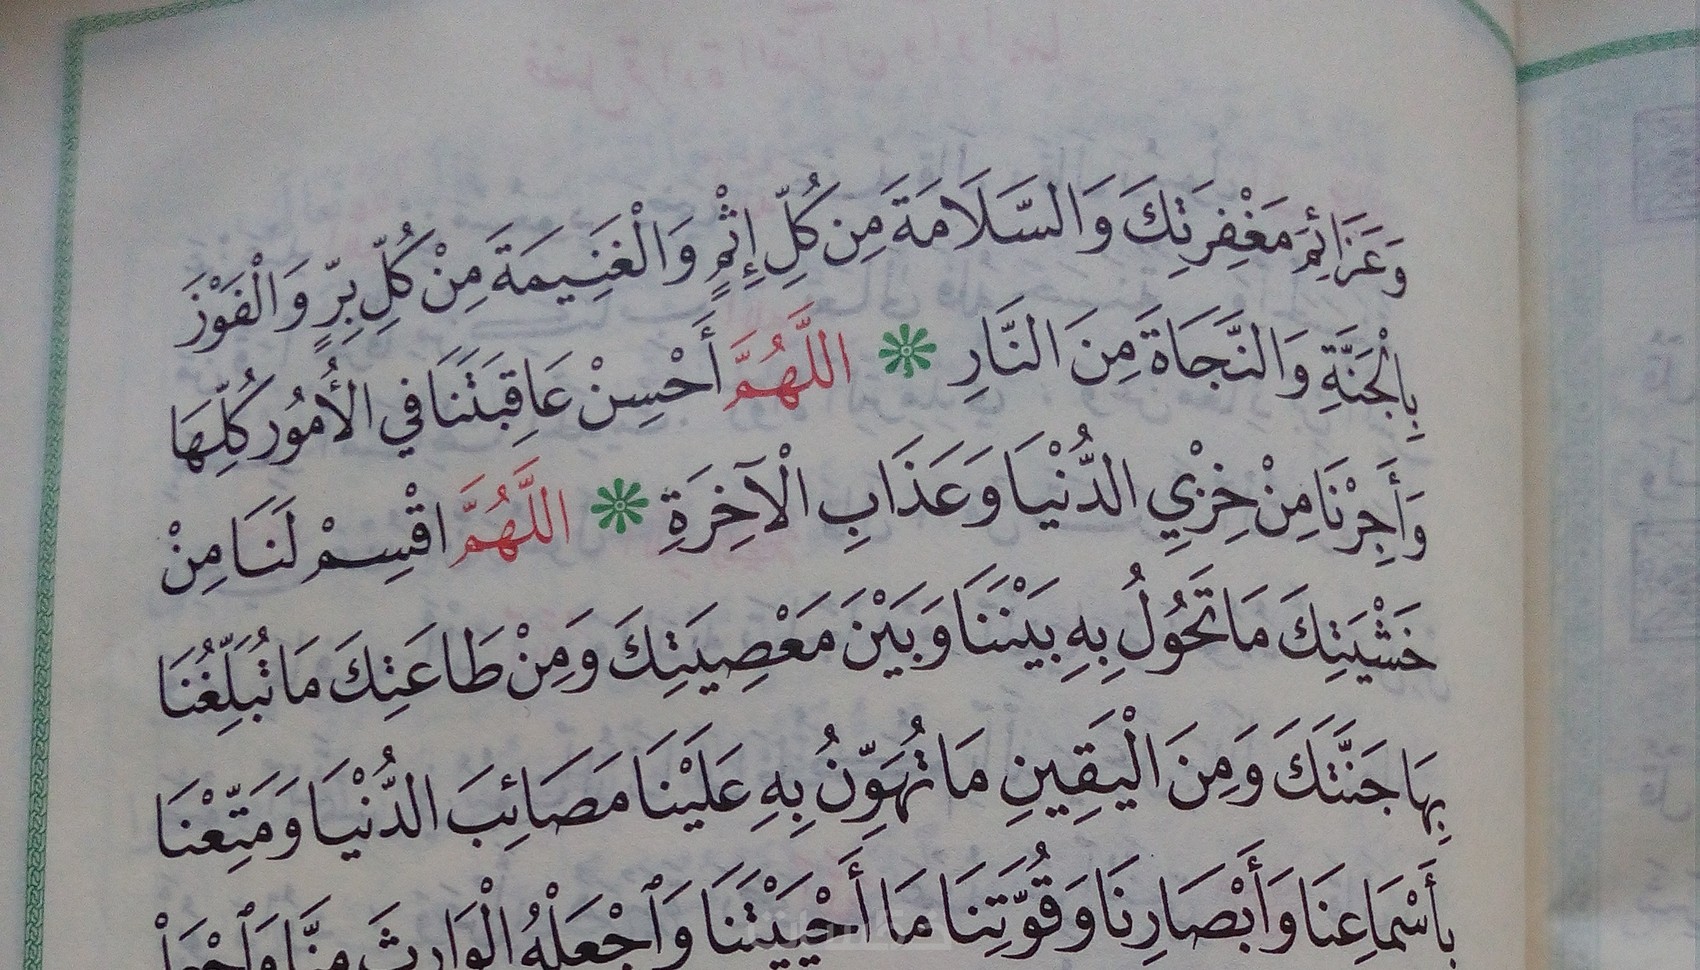 وَعَزَائِمَ مَغْفِرَتِكَ وَالسَّلَامَةَ مِن كُلِّ إِثْمٍ وَالْغَنِيمَةَ مِنْ كُلِّ بِرٍّ وَالْفَوْزَ
بِالْجَنَّةِ وَالنَّجَاةَ مِنَ النَّارِ ❋ اللَّهُمَّ أَحْسِنْ عَاقِبَتَنَا فِي الْأُمُورِ كُلِّهَا
وَأَجِرْنَا مِنْ خِزْيِ الدُّنْيَا وَعَذَابِ الْآخِرَةِ ❋ اللَّهُمَّ اقْسِمْ لَنَا مِنْ
خَشْيَتِكَ مَا تَحُولُ بِهِ بَيْنَنَا وَبَيْنَ مَعْصِيَتِكَ وَمِنْ طَاعَتِكَ مَا تُبَلِّغُنَا
بِهَا جَنَّتَكَ وَمِنَ الْيَقِينِ مَا تُهَوِّنُ بِهِ عَلَيْنَا مَصَائِبَ الدُّنْيَا وَمَتِّعْنَا
بِأَسْمَاعِنَا وَأَبْصَارِنَا وَقُوَّتِنَا مَا أَحْيَيْتَنَا وَاجْعَلْهُ الْوَارِثَ مِنَّا وَاجْعَلْ